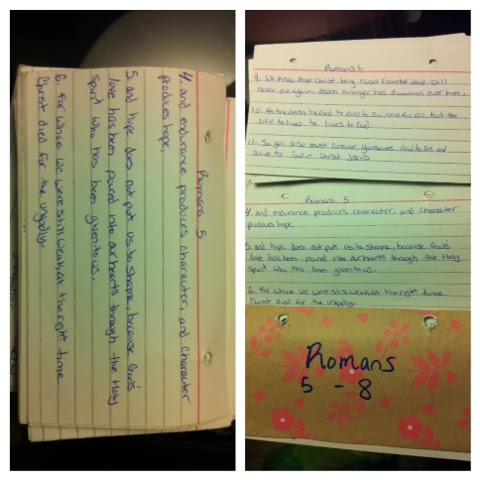 Romans 5
4. and endurance produces character, and character
produces hope.
5. and hope does not put us to shame, because God's
love has been poured into our hearts through the Holy
Spirit who has been given to us.
6. for while we were still weak, at the right time
Christ died for the ungodly.
Romans 6
9. We know that Christ, being raised from the dead, will
never die again. death no longer has dominion over him.
10. For the death he died to sin, once for all, but the
life he lives he lives to God.
11. So you also must consider yourselves dead to sin and
alive to God in Christ Jesus
Romans 5
4. and endurance produces character, and character
produces hope.
5. and hope does not put us to shame, because God's
love has been poured into our hearts through the Holy
Spirit who has been given to us.
6. for while we were still weak, at the right time
Christ died for the ungodly.
Romans
5 - 8